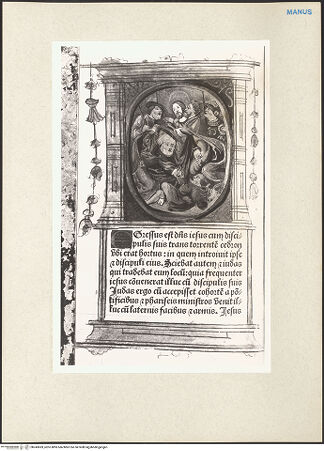 MANUS
Egressus est dñs iesus cum disci-
pulis suis trans torrentē cedron
vbi erat hortus: in quem introiuit ipse
⁊ discipuli eius. Sciebat autem ⁊ iudas
qui tradebat eum locū: quia frequenter
iesus cōuenerat illuc cū discipulis suis
Judas ergo cū accepisset cohortē a pō-
tificibus ⁊ phariseis ministros venit il-
luc cū laternis facibus ⁊ armis. Jesus